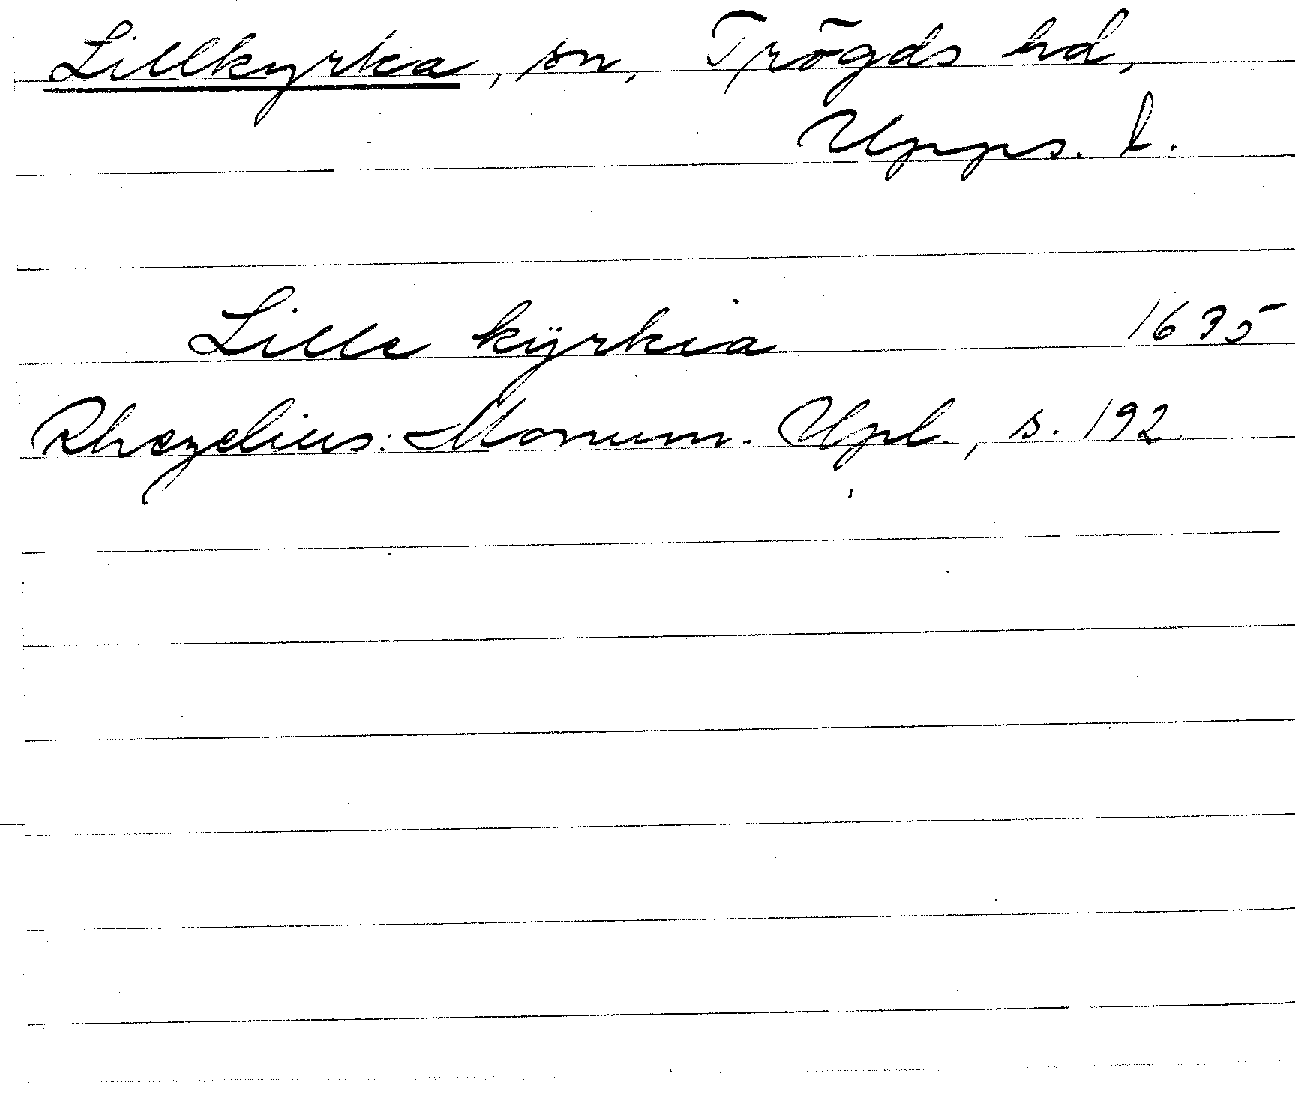 Lillkyrka, sn, Trögds hd,
Upps. l.
Lille kÿrkia 1635
Rhezelius: Monum. Upl., s. 192